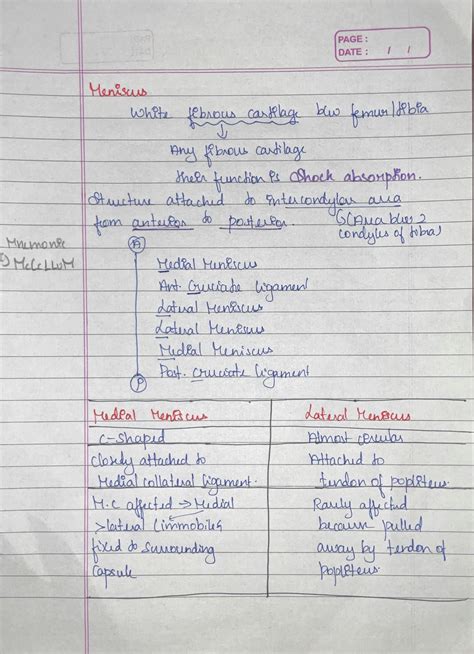 PAGE :
DATE : / /
Meniscus
White fibrous cartilage b/w femur/tibia
Any fibrous cartilage
their function is Shock absorption.
Structure attached to intercondylar area
from anterior to posterior. (Area b/w 2
condyles of tibia)
Mnemonic
A
Medial Meniscus
Ant. Cruciate ligament
Lateral Meniscus
Lateral Meniscus
Medial Meniscus
P Post. Cruciate ligament
Medial Meniscus Lateral Meniscus
C-shaped Almost circular
Closely attached to Attached to
Medial collateral ligament. tendon of popliteus.
M.C affected → Medial Rarely affected
>lateral (immobile& because pulled
fixed to surrounding away by tendon of
capsule popliteus.